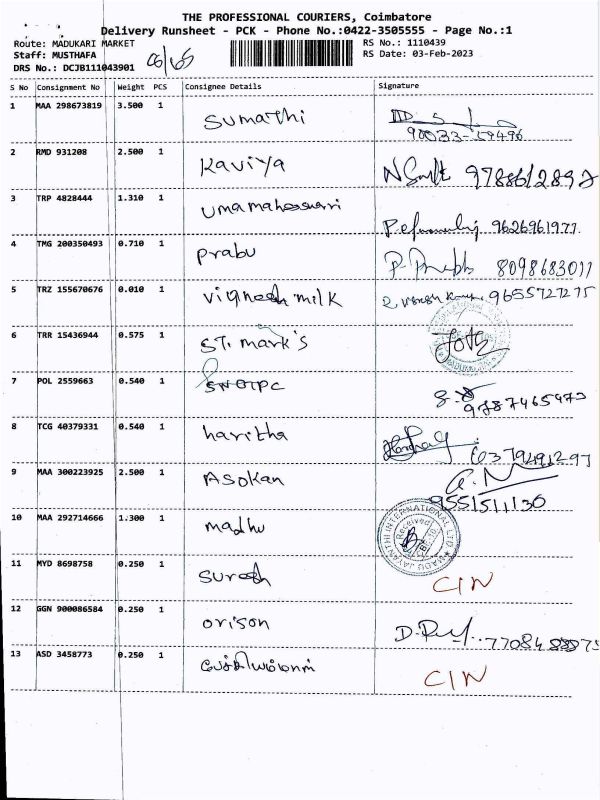 THE PROFESSIONAL COURIERS, Coimbatore
Delivery Runsheet - PCK - Phone No.:0422-3505555 - Page No.:1
Route: MADUKARI MARKET
RS No.: 1110439
Staff: MUSTHAFA
RS Date: 03-Feb-2023
DRS No.: DCJB111043901
S No Consignment No Weight PCS Consignee Details Signature
1 MAA 298673819 3.500 1 Sumathi
2 RMD 931208 2.500 1 Kaviya 9788612897
3 TRP 4828444 1.310 1 Umamaheswari 9626961977
4 TMG 200350493 0.710 1 Prabu 8098683011
5 TRZ 155670676 0.010 1 Vignesh milk 9655727275
6 TRR 15436944 0.575 1 ST. mark's
7 POL 2559663 0.540 1
8 TCG 40379331 0.540 1 haritha
9 MAA 300223925 2.500 1 Asokan 9551511130
10 MAA 292714666 1.300 1 madhu Received
11 MYD 8698758 0.250 1 Suresh CIN
12 GGN 900086584 0.250 1 orison
13 ASD 3458773 0.250 1 CIN